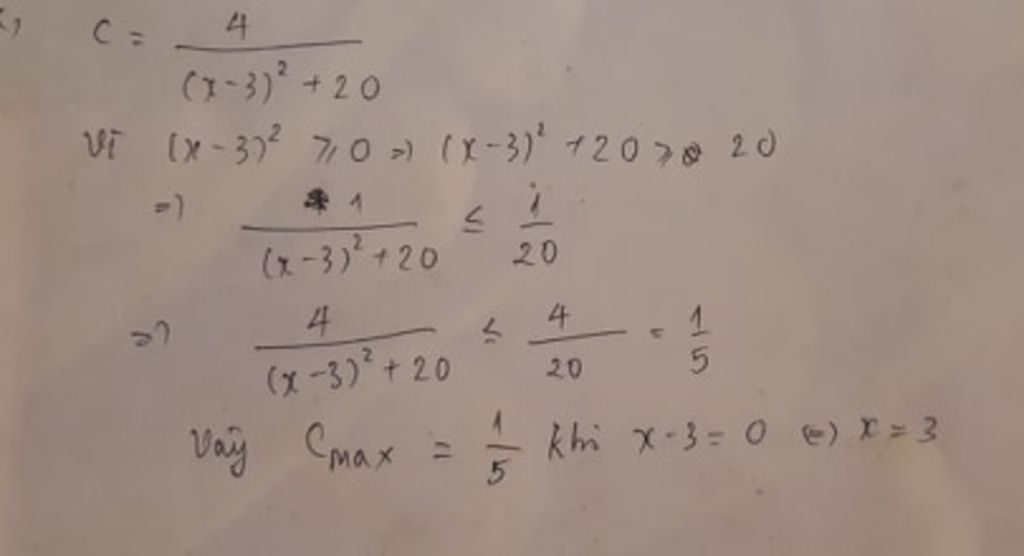 C = 4 / ((x-3)² + 20)
Vì (x-3)² ⩾ 0 => (x-3)² + 20 ⩾ 20
=> 1 / ((x-3)² + 20) ≤ 1/20
=> 4 / ((x-3)² + 20) ≤ 4/20 = 1/5
Vậy Cmax = 1/5 khi x-3 = 0 <=> x = 3